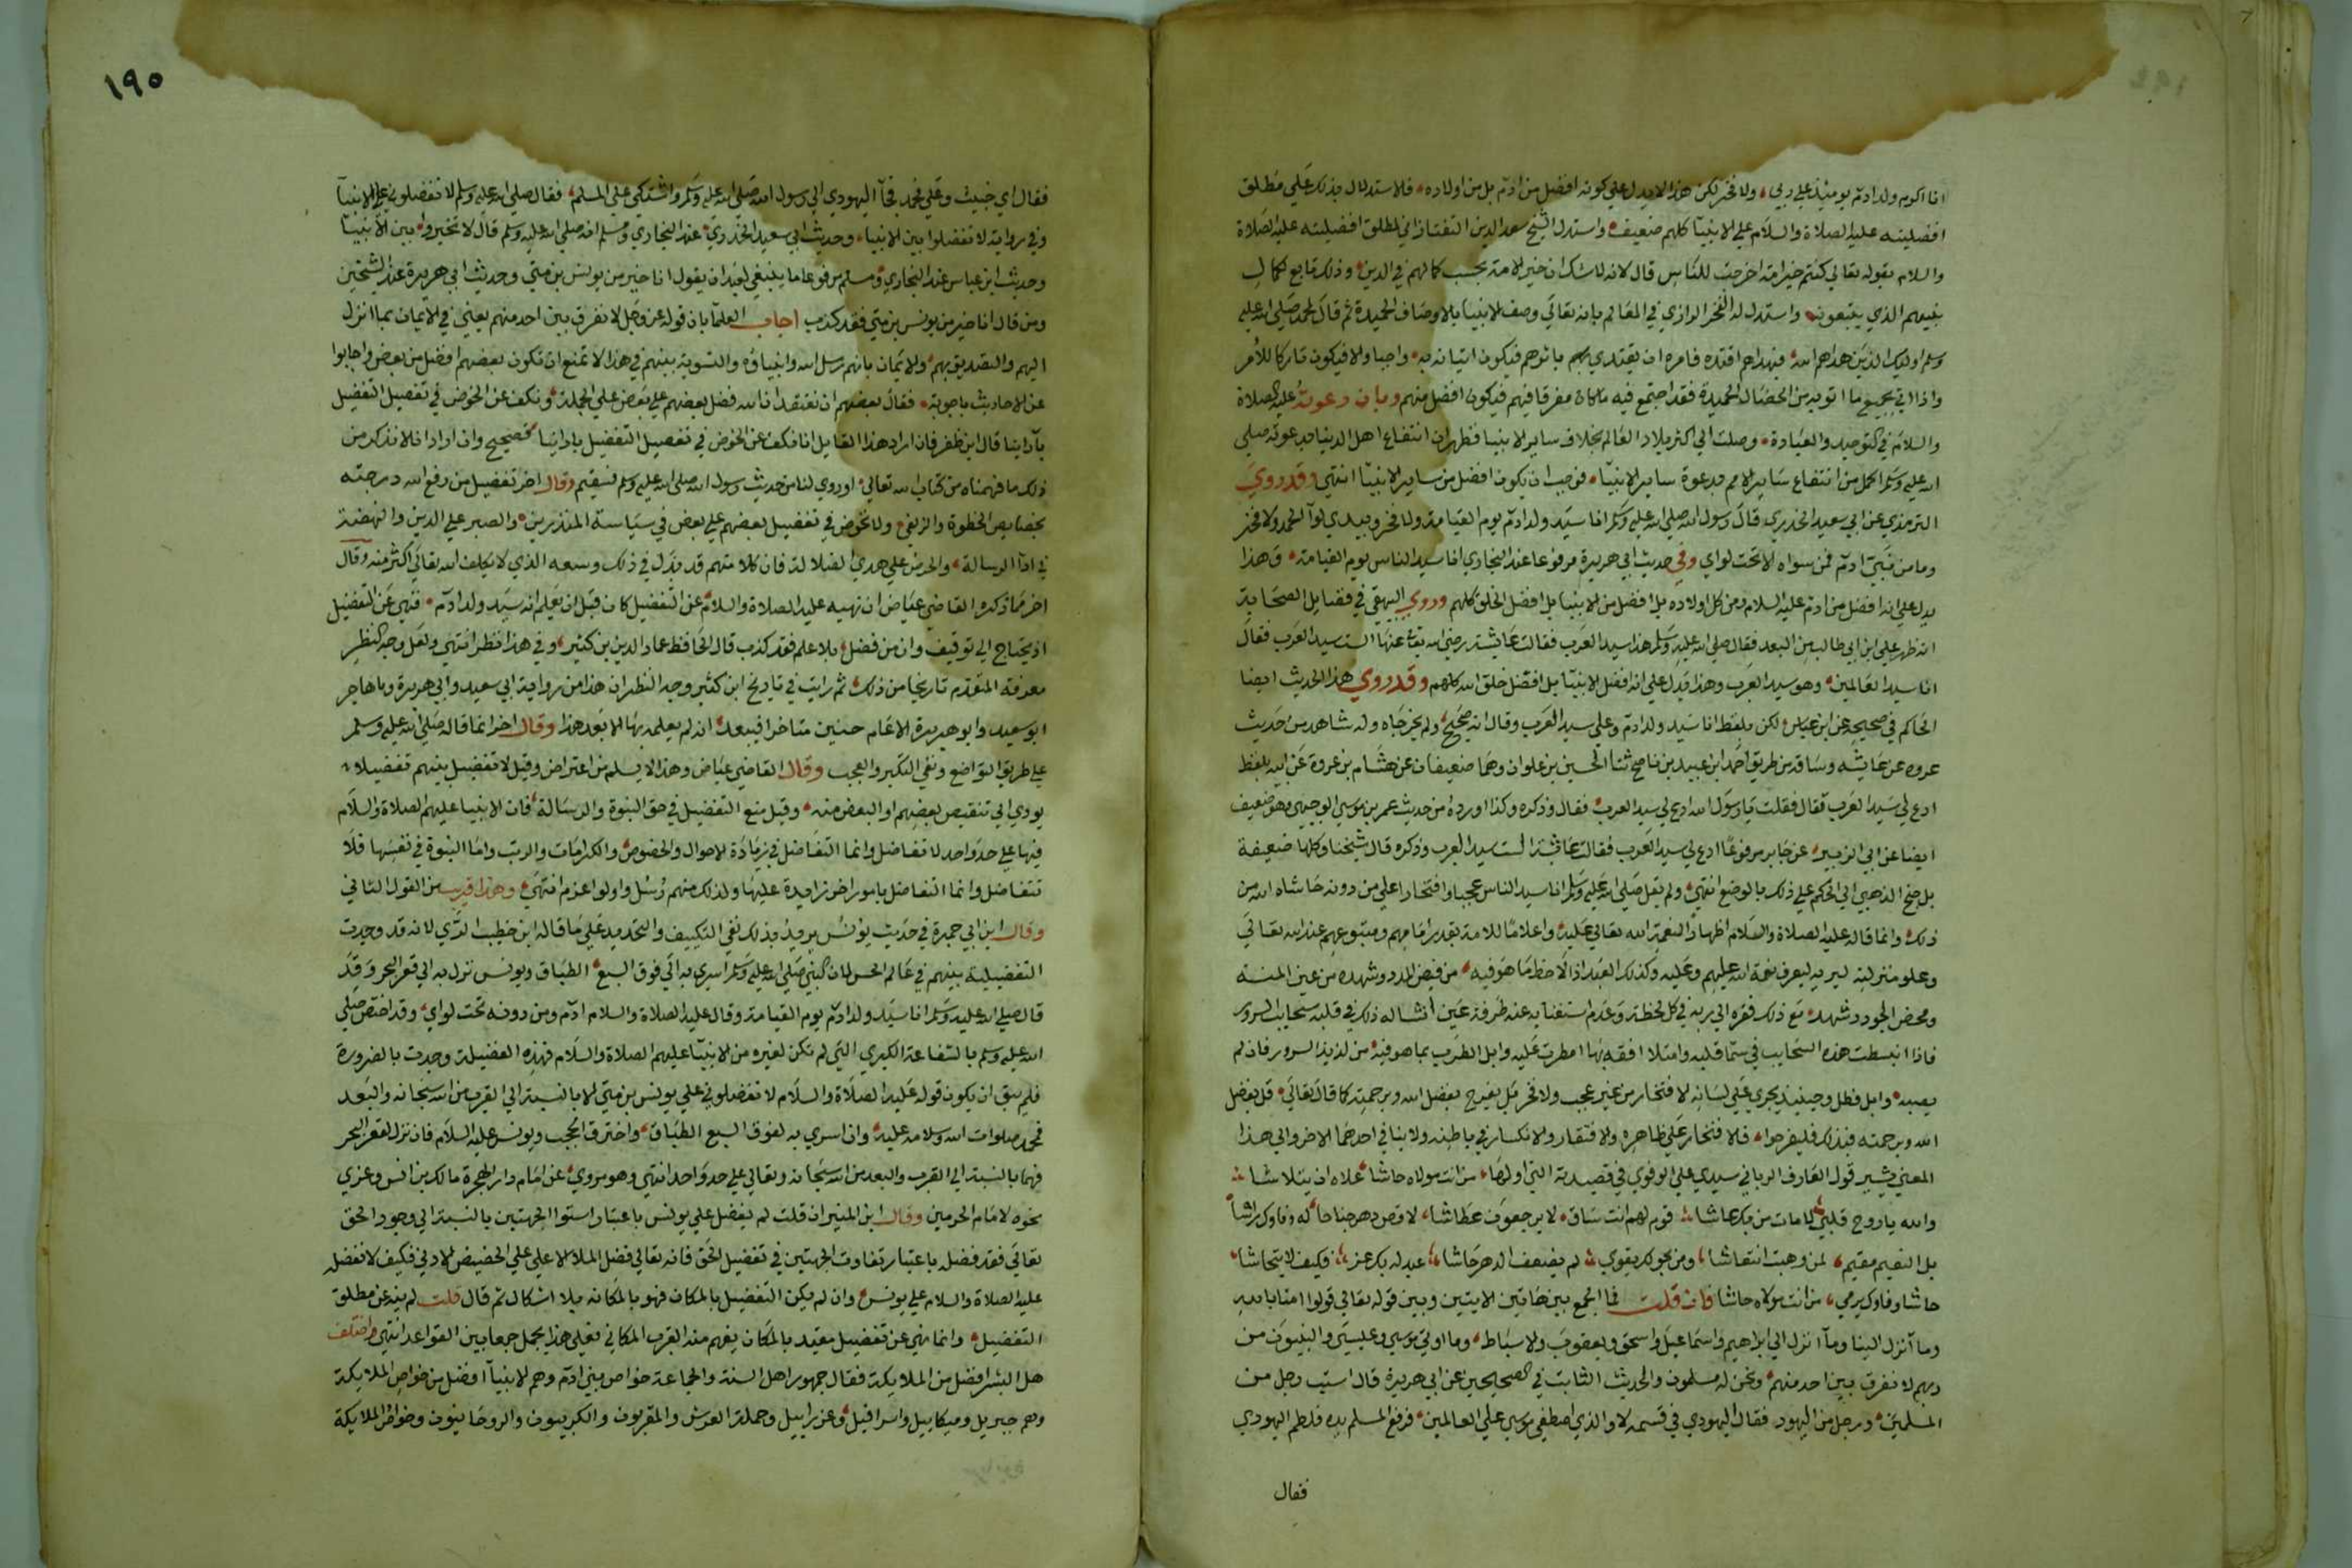 انا اكرم ولد ادم يومئذ علي ربي ولا فخر لكن هذا لا يدل علي كونه افضل من ادم بل من اولاده فلا ستدلال بذلك علي مطلق
افضليته عليه الصلاة والسلام علي الانبيآ كلهم ضعيف واستدل الشيخ سعد الدين التفتازاني لمطلق افضليته عليه الصلاة
والسلام بقوله تعالي كنتم خير امة اخرجت للناس قال لانه لا شك ان خير الامة بحسب كمالهم في الدين وذلك تابع لكمال
نبيهم الذي يتبعونه واستدل له الفخر الرازي في المعالم بانه تعالي وصف الانبيا بالاوصاف الحميدة ثم قال لمحمد صلي الله عليه
وسلم اوليك الذين هداهم الله فبهداهم اقتده فامره ان يقتدي بهم باثرهم فيكون اتيانه به واجبا والا فيكون تاركا للأمر
واذا اتي بجميع ما اتوا به من الخصال الحميدة فقد اجتمع فيه ما كان مفرقا فيهم فيكون افضل منهم وبان دعوته عليه الصلاة
والسلام في التوحيد والعبادة وصلت الي اكثر بلاد العالم بخلاف ساير الانبيا فظهر ان انتفاع اهل الدنيا بدعوته صلي
الله عليه وسلم اكمل من انتفاع ساير الامم بدعوة ساير الانبيآ فوجب ان يكون افضل من ساير الانبيآ انتهي وقد روي
الترمذي عن ابي سعيد الخدري قال رسول الله صلي الله عليه وسلم انا سيد ولد ادم يوم القيامة ولا فخر وبيدي لوآ الحمد ولا فخر
وما من نبي ادم فمن سواه الا تحت لواي وفي حديث ابي هريرة مرفوعا عند البخاري انا سيد الناس يوم القيامة وهذا
يدل علي انه افضل من ادم عليه السلام ومن كل اولاده بل افضل من الانبيا بل افضل الخلق كلهم وروي البيهقي في فضايل الصحابة
انه ظهر علي ابن ابي طالب من البعد فقال صلي الله عليه وسلم هذا سيد العرب فقالت عايشة رضي الله تع عنها الست سيد العرب فقال
انا سيد العالمين وهو سيد العرب وهذا يدل علي انه افضل الانبيآ بل افضل خلق الله كلهم وقد روي هذا الحديث ايضا
الحاكم في صحيحه عن ابن عباس لكن بلفظ انا سيد ولد ادم وعلي سيد العرب وقال انه صحيح ولم يخرجاه وله شاهد من حديث
عروه عن عايشه وساقه من طريق احمد ابن عبيد بن ناصح ثنا الحسين بن علوان وهما ضعيفان عن هشام بن عروة عن ابيه بلفظ
ادع لي سيد العرب فقال فقلت يا رسول الله ادع لي سيد العرب فقال وذكره وكذا اورده من حديث عمر بن موسي الوجيهي وهو ضعيف
ايضا عن ابي الزبير عن جابر مرفوعًا ادع لي سيد العرب فقالت عايشة الست سيد العرب وذكره قال شيخنا وكلها ضعيفة
بل جنح الذهبي الي الحكم علي ذلك بالوضع انتهي ولم يقل صلي الله عليه وسلم انا سيد الناس عجبا وافتخارا علي من دونه حاشاه الله من
ذلك وانما قاله عليه الصلاة والسلام اظهاراً لنعمة الله تعالي عليه واعلامًا للامة بقدر امامهم ومتبوعهم عند الله تعالي
وعلو منزلته لديه ليعرف نعمة الله عليهم وعليه وكذلك العبد اذا لاحظ ما هو فيه من فيض المدد وشهده من عين المنه
ومحض الجود وشهد مع ذلك فقره الي ربه في كل لحظة وعدم استغنايه عنه طرفة عين انشا له ذلك في قلبه سحايب السرور
فاذا انبسطت هذه السحايب في سما قلبه وامتلا افقه بها امطرت عليه وابل الطرب بما هو فيه من لذيذ السرور فان لم
يصبه وابل فطل وحينئذ يجري علي لسانه الافتخار من غير عجب ولا فخر بل يفرح بفضل الله وبرحمته كما قال تعالي قل بفضل
الله وبرحمته فبذلك فليفرحوا فلا فتخار علي ظاهره والافتقار والانكسار في باطنه ولا ينافي احدهما الاخر والي هذا
المعني يشير قول العارف الرباني سيدي علي الوفوي في قصيدته التي اولها من انت مولاه حاشا علاه ان يتلاشا
والله يا روح قلبي لا مات من بك عاشا قوم لهم انت ساق لا يرجعون عطاشا لا قص دهر جناحا له وفاوك راشا
بل النعيم مقيم لمن وهبت انتعاشا ومن بحولك يقوي لم يضعف الدهر جاشا عبد له بك عز فكيف لا يتحاشا
حاشا وفاوك يرمي من انت مولاه حاشا فان قلت فما الجمع بين هاتين الايتين وبين قوله تعالي قولوا امنا بالله
وما آنزل الينا ومآ انزل الي ابراهيم واسماعيل واسحق ويعقوب والاسباط وما اوتي موسي وعيسي والنبيون من
ربهم لا نفرق بين احد منهم ونحن له مسلمون والحديث الثابت في الصحيحين عن ابي هريرة قال استب رجل من
المسلمين ورجل من اليهود فقال اليهودي في قسمه لا والذي اصطفي موسي علي العالمين فرفع المسلم يده فلطم اليهودي
فقال
١٩٥
فقال اي خبيث وعلي محمد فجآ اليهودي الي رسول الله صلي الله عليه وسلم واشتكي علي المسلم فقال صلي الله عليه وسلم لا تفضلوني علي الانبيآ
وفي رواية لا تفضلوا بين الانبيا وحديث ابي سعيد الخدري عند البخاري ومسلم انه صلي الله عليه وسلم قال لا تخيروا بين الانبيآ
وحديث ابن عباس عند البخاري ومسلم مرفوعا ما ينبغي لعبد ان يقول انا خير من يونس بن متي وحديث ابي هريرة عند الشيخين
ومن قال انا خير من يونس بن متي فقد كذب اجاب العلمآ بان قوله عز وجل لا نفرق بين احد منهم يعني في الايمان بما انزل
اليهم والتصديق بهم والايمان بانهم رسل الله وانبياؤه والتسوية بينهم في هذا لا تمنع ان تكون بعضهم افضل من بعض واجابوا
عن الاحاديث باجوبة فقال بعضهم ان نعتقد ان الله فضل بعضهم علي بعض علي الجملة ونكف عن الخوض في تفصيل التفضيل
بآراينا قال ابن ظفر فان اراد هذا القايل انا نكف عن الخوض في تفصيل التفضيل باراينا فصحيح وان اراد انا لا نذكر من
ذلك ما فهمناه من كتاب الله تعالي او روي لنا من حديث رسول الله صلي الله عليه وسلم فسقيم وقال اخر تفضيل من رفع الله درجته
بخصايص الخطوة والزلفي ولا نخوض في تفضيل بعضهم علي بعض في سياسة المنذرين والصبر علي الدين والنهضة
في ادآ الرسالة والحرص علي هدي الضلال لد فان كلا منهم قد بذل في ذلك وسعه الذي لا يكلف الله تعالي اكثر منه وقال
اخر مما ذكره القاضي عياض ان نهيه عليه الصلاة والسلام عن التفضيل كان قبل ان يعلم انه سيد ولد ادم فنهي عن التفضيل
اذ يحتاج الي توقيف وان من فضل بلا علم فقد كذب قال الحافظ عماد الدين بن كثير وفي هذا نظر انتهي ولعل وجه النظر
معرفة المتقدم تاريخا من ذلك ثم رايت في تاريخ ابن كثير وجه النظر ان هذا من رواية ابي سعيد وابي هريرة وما هاجر
ابو سعيد وابو هريرة الا عام حنين متاخرا فيبعد انه لم يعلمه بها الا بعد هذا وقال اخر انما قاله صلي الله عليه وسلم
علي طريق التواضع ونفي التكبر والعجب وقال القاضي عياض وهذا لا يسلم من اعتراض وقيل لا تفضيل بينهم تفضيلا
يودي الي تنقيص بعضهم او البعض منه وقيل منع التفضيل في حق النبوة والرسالة فان الانبيا عليهم الصلاة والسلام
فيها علي حد واحد لا تفاضل وانما التفاضل في زيادة الاحوال والخصوص والكرامات والرتب واما النبوة في نفسها فلا
تتفاضل وانما التفاضل بامور اخر زايدة عليها ولذلك منهم رسل واولوا عزم انتهي وهذا قريب من القول الثاني
وقال ابن ابي جمرة في حديث يونس يريد بذلك نفي التكييف والتحديد علي ما قاله ابن خطيب الري لانه قد وجدت
التفضيلية بينهم في عالم الحس لان النبي صلي الله عليه وسلم اسري به الي فوق السبع الطباق ويونس نزل به الي قعر البحر وقد
قال صلي الله عليه وسلم انا سيد ولد ادم يوم القيامة وقال عليه الصلاة والسلام ادم ومن دونه تحت لواي وقد اختص صلي
الله عليه وسلم بالشفاعة الكبري التي لم تكن لغيره من الانبيآ عليهم الصلاة والسلام فهذه الفضيلة وجدت بالضرورة
فلم يبق ان يكون قوله عليه الصلاة والسلام لا تفضلوني علي يونس بن متي الا بالنسبة الي القرب من الله سبحانه والبعد
فمحمد صلوات الله وسلامه عليه وان اسري به لفوق السبع الطباق واخترق الحجب ويونس عليه السلام فان نزل لقعر البحر
فهما بالنسبة الي القرب والبعد من الله سبحانه وتعالي علي حد واحد انتهي وهو مروي عن امام دار الهجرة مالك بن انس وعزي
نحوه لامام الحرمين وقال ابن المنير ان قلت لم يفضل علي يونس باعتبار استوا الجهتين بالنسبة الي وجود الحق
تعالي فقد فضله باعتبار تفاوت الجهتين في تفضيل الحق فانه تعالي فضل الملا الاعلي علي الحضيض الادني فكيف لا نفضله
عليه الصلاة والسلام علي يونس وان لم يكن التفضيل بالمكان فهو بالمكانه بلا اشكال ثم قال قلت لم ينه عن مطلق
التفضيل وانما نهي عن تفضيل مقيد بالمكان يفهم منه القرب المكاني فعلي هذا يحمل جمعا بين القواعد انتهي واختلف
هل البشر افضل من الملايكة فقال جمهور اهل السنة والجماعة خواص بني ادم وهم الانبيآ افضل من خواص الملايكة
وهم جبريل وميكاييل واسرافيل وعزراييل وحملة العرش والمقربون والكربيون والروحانيون وخواص الملايكة